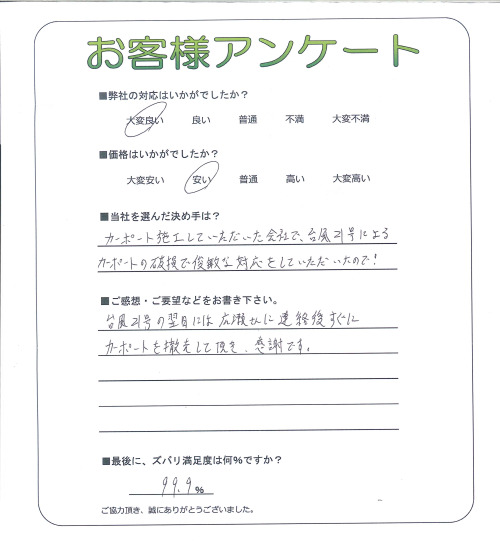 お客様アンケート
■弊社の対応はいかがでしたか?
大変良い 良い 普通 不満 大変不満
■価格はいかがでしたか?
大変安い 安い 普通 高い 大変高い
■当社を選んだ決め手は?
カーポート施工していただいた会社で、台風21号による
カーポートの破損で俊敏な対応をしていただいたので!
■ご感想・ご要望などをお書き下さい。
台風21号の翌日には広瀬さんに連絡後すぐに
カーポートを撤去して頂き、感謝です。
■最後に、ズバリ満足度は何%ですか?
99.9%
ご協力頂き、誠にありがとうございました。